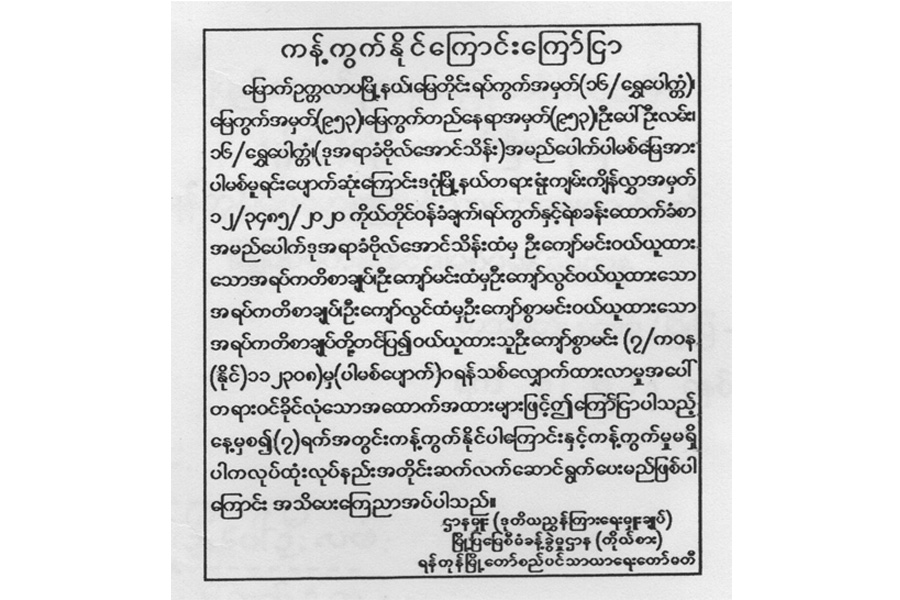 ကန့်ကွက်နိုင်ကြောင်းကြော်ငြာ
မြောက်ဥက္ကလာပမြို့နယ်၊မြေတိုင်းရပ်ကွက်အမှတ်(၁၆/ရွှေပေါက္ကံ)၊
မြေကွက်အမှတ်(၉၅၃)၊မြေကွက်တည်နေရာအမှတ်(၉၅၃)၊ဦးပေါ်ဦးလမ်း၊
၁၆/ရွှေပေါက္ကံ၊(ဒုအရာခံဗိုလ်အောင်သိန်း)အမည်ပေါက်ပါမစ်မြေအား
ပါမစ်မူရင်းပျောက်ဆုံးကြောင်းဒဂုံမြို့နယ်တရားရုံးကျမ်းကျိန်လွှာအမှတ်
၁၂/၃၄၈၅/၂၀၂၀ ကိုယ်တိုင်ဝန်ခံချက်၊ရပ်ကွက်နှင့်ရဲစခန်းထောက်ခံစာ
အမည်ပေါက်ဒုအရာခံဗိုလ်အောင်သိန်းထံမှ ဦးကျော်မင်းဝယ်ယူထား
သောအရပ်ကတိစာချုပ်၊ဦးကျော်မင်းထံမှဦးကျော်လွင်ဝယ်ယူထားသော
အရပ်ကတိစာချုပ်၊ဦးကျော်လွင်ထံမှဦးကျော်စွာမင်းဝယ်ယူထားသော
အရပ်ကတိစာချုပ်တို့တင်ပြ၍ဝယ်ယူထားသူဦးကျော်စွာမင်း (၇/ကဝန
(နိုင်)၁၁၂၃၀၈)မှ(ပါမစ်ပျောက်)ဂရန်သစ်လျှောက်ထားလာမှုအပေါ်
တရားဝင်ခိုင်လုံသောအထောက်အထားများဖြင့်ဤကြော်ငြာပါသည့်
နေ့မှစ၍(၇)ရက်အတွင်းကန့်ကွက်နိုင်ပါကြောင်းနှင့်ကန့်ကွက်မှုမရှိ
ပါကလုပ်ထုံးလုပ်နည်းအတိုင်းဆက်လက်ဆောင်ရွက်ပေးမည်ဖြစ်ပါ
ကြောင်း အသိပေးကြေညာအပ်ပါသည်။
ဌာနမှူး (ဒုတိယညွှန်ကြားရေးမှူးချုပ်)
မြို့ပြမြေစီမံခန့်ခွဲမှုဌာန (ကိုယ်စား)
ရန်ကုန်မြို့တော်စည်ပင်သာယာရေးကော်မတီ